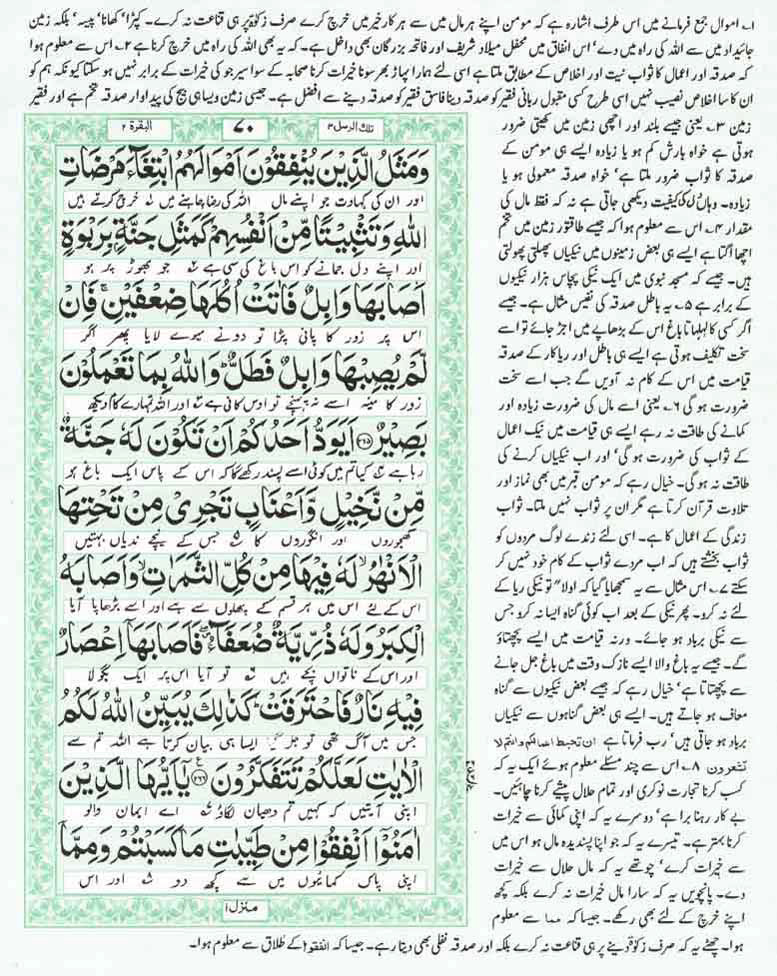 ۱۔ اموال جمع فرمانے میں اس طرف اشارہ ہے کہ مومن اپنے ہر مال میں سے ہر کار خیر میں خرچ کرے صرف زکوٰۃ پر ہی قناعت نہ کرے۔ کپڑا، کھانا، پیسہ، بلکہ زمین
جائیداد میں سے اللہ کی راہ میں دے، اس انفاق میں محفل میلاد شریف اور فاتحہ بزرگان بھی داخل ہے۔ کہ یہ بھی اللہ کی راہ میں خرچ کرنا ہے ۲۔ اس سے معلوم ہوا
کہ صدقہ اور اعمال کا ثواب نیت اور اخلاص کے مطابق ملتا ہے اسی لئے ہمارا پہاڑ بھر سونا خیرات کرنا صحابہ کے سوا سیر جو کی خیرات کے برابر نہیں ہو سکتا کیونکہ ہم کو
ان کا سا اخلاص نصیب نہیں اسی طرح کسی مقبول ربانی فقیر کو صدقہ دینا فاسق فقیر کو صدقہ دینے سے افضل ہے۔ جیسی زمین ویسا ہی بیج کی پیداوار صدقہ تخم ہے اور فقیر
زمین ۳۔ یعنی جیسے بلند اور اچھی زمین میں کھیتی ضرور
ہوتی ہے خواہ بارش کم ہو یا زیادہ ایسے ہی مومن کے
صدقہ کا ثواب ضرور ملتا ہے، خواہ صدقہ معمولی ہو یا
زیادہ۔ وہاں کیفیت دیکھی جاتی ہے نہ کہ فقط مال کی
مقدار ۴۔ اس سے معلوم ہوا کہ جیسے طاقتور زمین میں تخم
اچھا اگتا ہے ایسے ہی بعض زمینوں میں نیکیاں پھلتی پھولتی
ہیں۔ جیسے کہ مسجد نبوی میں ایک نیکی پچاس ہزار نیکیوں
کے برابر ہے ۵۔ یہ باطل صدقہ کی نفیس مثال ہے۔ جیسے
اگر کسی کا لہلہاتا باغ اس کے بڑھاپے میں اجڑ جائے تو اسے
سخت تکلیف ہوتی ہے ایسے ہی باطل اور ریاکار کے صدقہ
قیامت میں اس کے کام نہ آویں گے جب اسے سخت
ضرورت ہو گی ۶۔ یعنی اسے مال کی ضرورت زیادہ اور
کمانے کی طاقت نہ رہے ایسے ہی قیامت میں نیک اعمال
کے ثواب کی ضرورت ہو گی، اور اب نیکیاں کرنے کی
طاقت نہ ہو گی۔ خیال رہے کہ مومن قبر میں بھی نماز اور
تلاوت قرآن کرتا ہے مگر ان پر ثواب نہیں ملتا۔ ثواب
زندگی کے اعمال کا ہے۔ اسی لئے زندے لوگ مردوں کو
ثواب بخشتے ہیں کہ اب مردے ثواب کے کام خود نہیں کر
سکتے ۷۔ اس مثال سے یہ سمجھایا گیا کہ اولا" تو نیکی ریا کے
لئے نہ کرو۔ پھر نیکی کے بعد اب کوئی گناہ ایسا نہ کرو جس
سے نیکی برباد ہو جائے۔ ورنہ قیامت میں ایسے پچھتاؤ
گے۔ جیسے یہ باغ والا ایسے نازک وقت میں باغ جل جانے
سے پچھتاتا ہے، خیال رہے کہ جیسے بعض نیکیوں سے گناہ
معاف ہو جاتے ہیں۔ ایسے ہی بعض گناہوں سے نیکیاں
برباد ہو جاتی ہیں، رب فرماتا ہے ان تحبط اعمالکم وانتم لا
تشعرون ۸۔ اس سے چند مسئلے معلوم ہوئے ایک یہ کہ
کسب کرنا تجارت نوکری اور تمام حلال پیشے کرنا چاہئیں۔
بے کار رہنا برا ہے، دوسرے یہ کہ اپنی کمائی سے خیرات
کرنا بہتر ہے۔ تیسرے یہ کہ جو اپنا پسندیدہ مال ہو اس میں
سے خیرات کرے، چوتھے یہ کہ مال حلال سے خیرات
دے۔ پانچویں یہ کہ سارا مال خیرات نہ کرے بلکہ کچھ
اپنے خرچ کے لئے بھی رکھے۔ جیسا کہ مما سے معلوم
ہوا۔ چھٹے یہ کہ صرف زکوٰۃ دینے پر ہی قناعت نہ کرے بلکہ اور صدقہ نفلی بھی دیتا رہے۔ جیسا کہ انفقوا کے طلاق سے معلوم ہوا۔
تلک الرسل ۳ ۷۰ البقرۃ ۲
وَمَثَلُ الَّذِيْنَ يُنْفِقُوْنَ اَمْوَالَهُمُ ابْتِغَآءَ مَرْضَاتِ
اور ان کی کہاوت جو اپنے مال اللہ کی رضا چاہنے میں خرچ کرتے ہیں
اللّٰهِ وَتَثْبِيْتًا مِّنْ اَنْفُسِهِمْ كَمَثَلِ جَنَّةٍۭ بِرَبْوَةٍ
اور اپنے دل جمانے کو اس باغ کی سی ہے جو بھوڑ پر ہو
اَصَابَهَا وَابِلٌ فَاٰتَتْ اُكُلَهَا ضِعْفَيْنِ ۚ فَاِنْ
اس پر زور کا پانی پڑا تو دونے میوے لایا پھر اگر
لَّمْ يُصِبْهَا وَابِلٌ فَطَلٌّ ؕ وَاللّٰهُ بِمَا تَعْمَلُوْنَ
زور کا مینہ اسے نہ پہنچے تو اوس کافی ہے اور اللہ تمہارے کام دیکھ
بَصِيْرٌ ۲۶۵ اَيَوَدُّ اَحَدُكُمْ اَنْ تَكُوْنَ لَهٗ جَنَّةٌ
رہا ہے کیا تم میں کوئی اسے پسند رکھے گا کہ اس کے پاس ایک باغ ہو
مِّنْ نَّخِيْلٍ وَّاَعْنَابٍ تَجْرِيْ مِنْ تَحْتِهَا
کھجوروں اور انگوروں کا جس کے نیچے ندیاں بہتیں
الْاَنْهٰرُ ۙ لَهٗ فِيْهَا مِنْ كُلِّ الثَّمَرٰتِ ۙ وَاَصَابَهُ
اس کے لئے اس میں ہر قسم کے پھلوں سے ہے اور اسے بڑھاپا آیا
الْكِبَرُ وَلَهٗ ذُرِّيَّةٌ ضُعَفَآءُ ۖ فَاَصَابَهَاۤ اِعْصَارٌ
اور اس کے ناتواں بچے ہیں تو آیا اس پر ایک بگولا
فِيْهِ نَارٌ فَاحْتَرَقَتْ ؕ كَذٰلِكَ يُبَيِّنُ اللّٰهُ لَكُمُ
جس میں آگ تھی تو جل گیا ایسا ہی بیان کرتا ہے اللہ تم سے
الْاٰيٰتِ لَعَلَّكُمْ تَتَفَكَّرُوْنَ ۲۶۶ يٰۤاَيُّهَا الَّذِيْنَ
اپنی آیتیں کہ کہیں تم دھیان لگاؤ اے ایمان والو
اٰمَنُوْۤا اَنْفِقُوْا مِنْ طَيِّبٰتِ مَا كَسَبْتُمْ وَمِمَّاۤ
اپنی پاک کمائیوں میں سے کچھ دو اور اس
منزل ۱